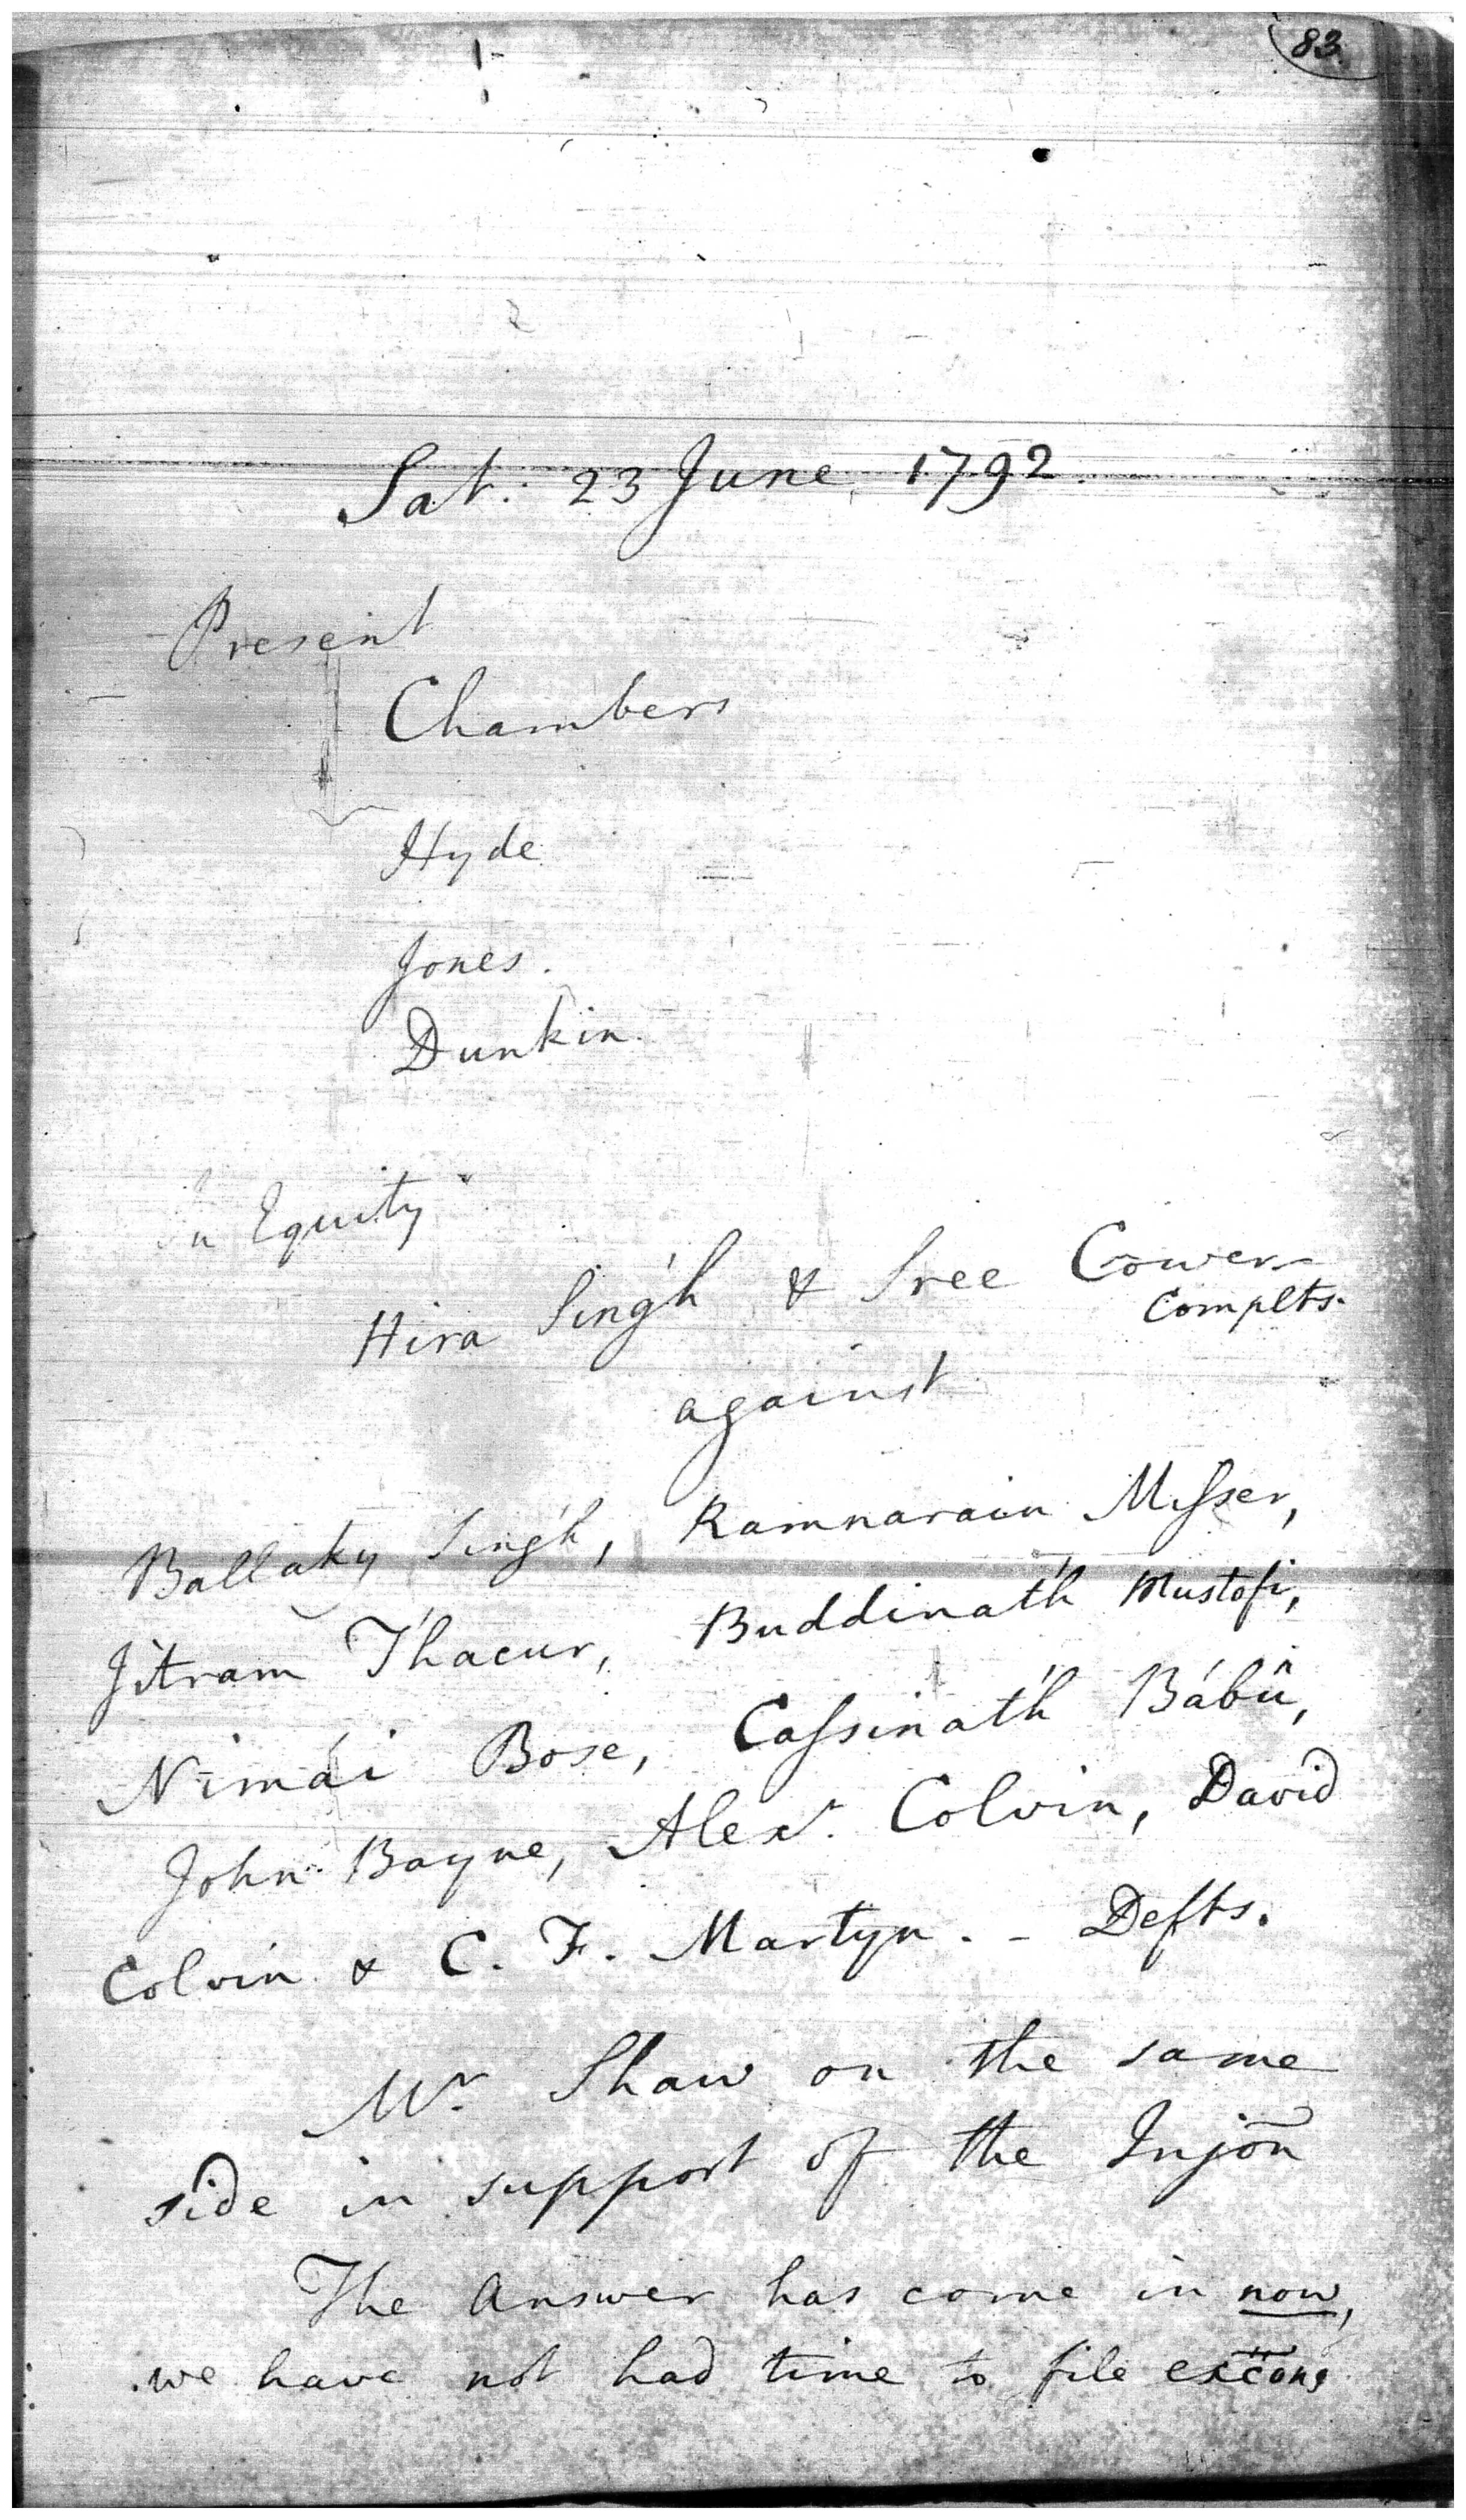 83.
Sat: 23 June 1792.
Present
Chambers
Hyde
Jones.
Dunkin.
In Equity
Hira Sing'h & Sree Cower
Complts.
against
Ballaky Sing'h, Ramnarain Misser,
Jitram T'hacur, Buddinat'h Mustofi,
Nimái Bose, Cassinat'h Bábû,
John Bayne, Alexr. Colvin, David
Colvin & C. F. Martyn. - Defts.
Mr. Shaw on the same
side in support of the Injōn
The Answer has come in now,
we have not had time to file excōns